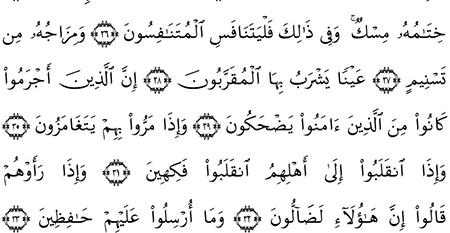 خِتَٰمُهُۥ مِسْكٌۚ وَفِى ذَٰلِكَ فَلْيَتَنَافَسِ ٱلْمُتَنَٰفِسُونَ ٢٦ وَمِزَاجُهُۥ مِن
تَسْنِيمٍ ٢٧ عَيْنًا يَشْرَبُ بِهَا ٱلْمُقَرَّبُونَ ٢٨ إِنَّ ٱلَّذِينَ أَجْرَمُوا۟
كَانُوا۟ مِنَ ٱلَّذِينَ ءَامَنُوا۟ يَضْحَكُونَ ٢٩ وَإِذَا مَرُّوا۟ بِهِمْ يَتَغَامَزُونَ ٣٠
وَإِذَا ٱنقَلَبُوٓا۟ إِلَىٰٓ أَهْلِهِمُ ٱنقَلَبُوا۟ فَكِهِينَ ٣١ وَإِذَا رَأَوْهُمْ
قَالُوٓا۟ إِنَّ هَٰٓؤُلَآءِ لَضَآلُّونَ ٣٢ وَمَآ أُرْسِلُوا۟ عَلَيْهِمْ حَٰفِظِينَ ٣٣